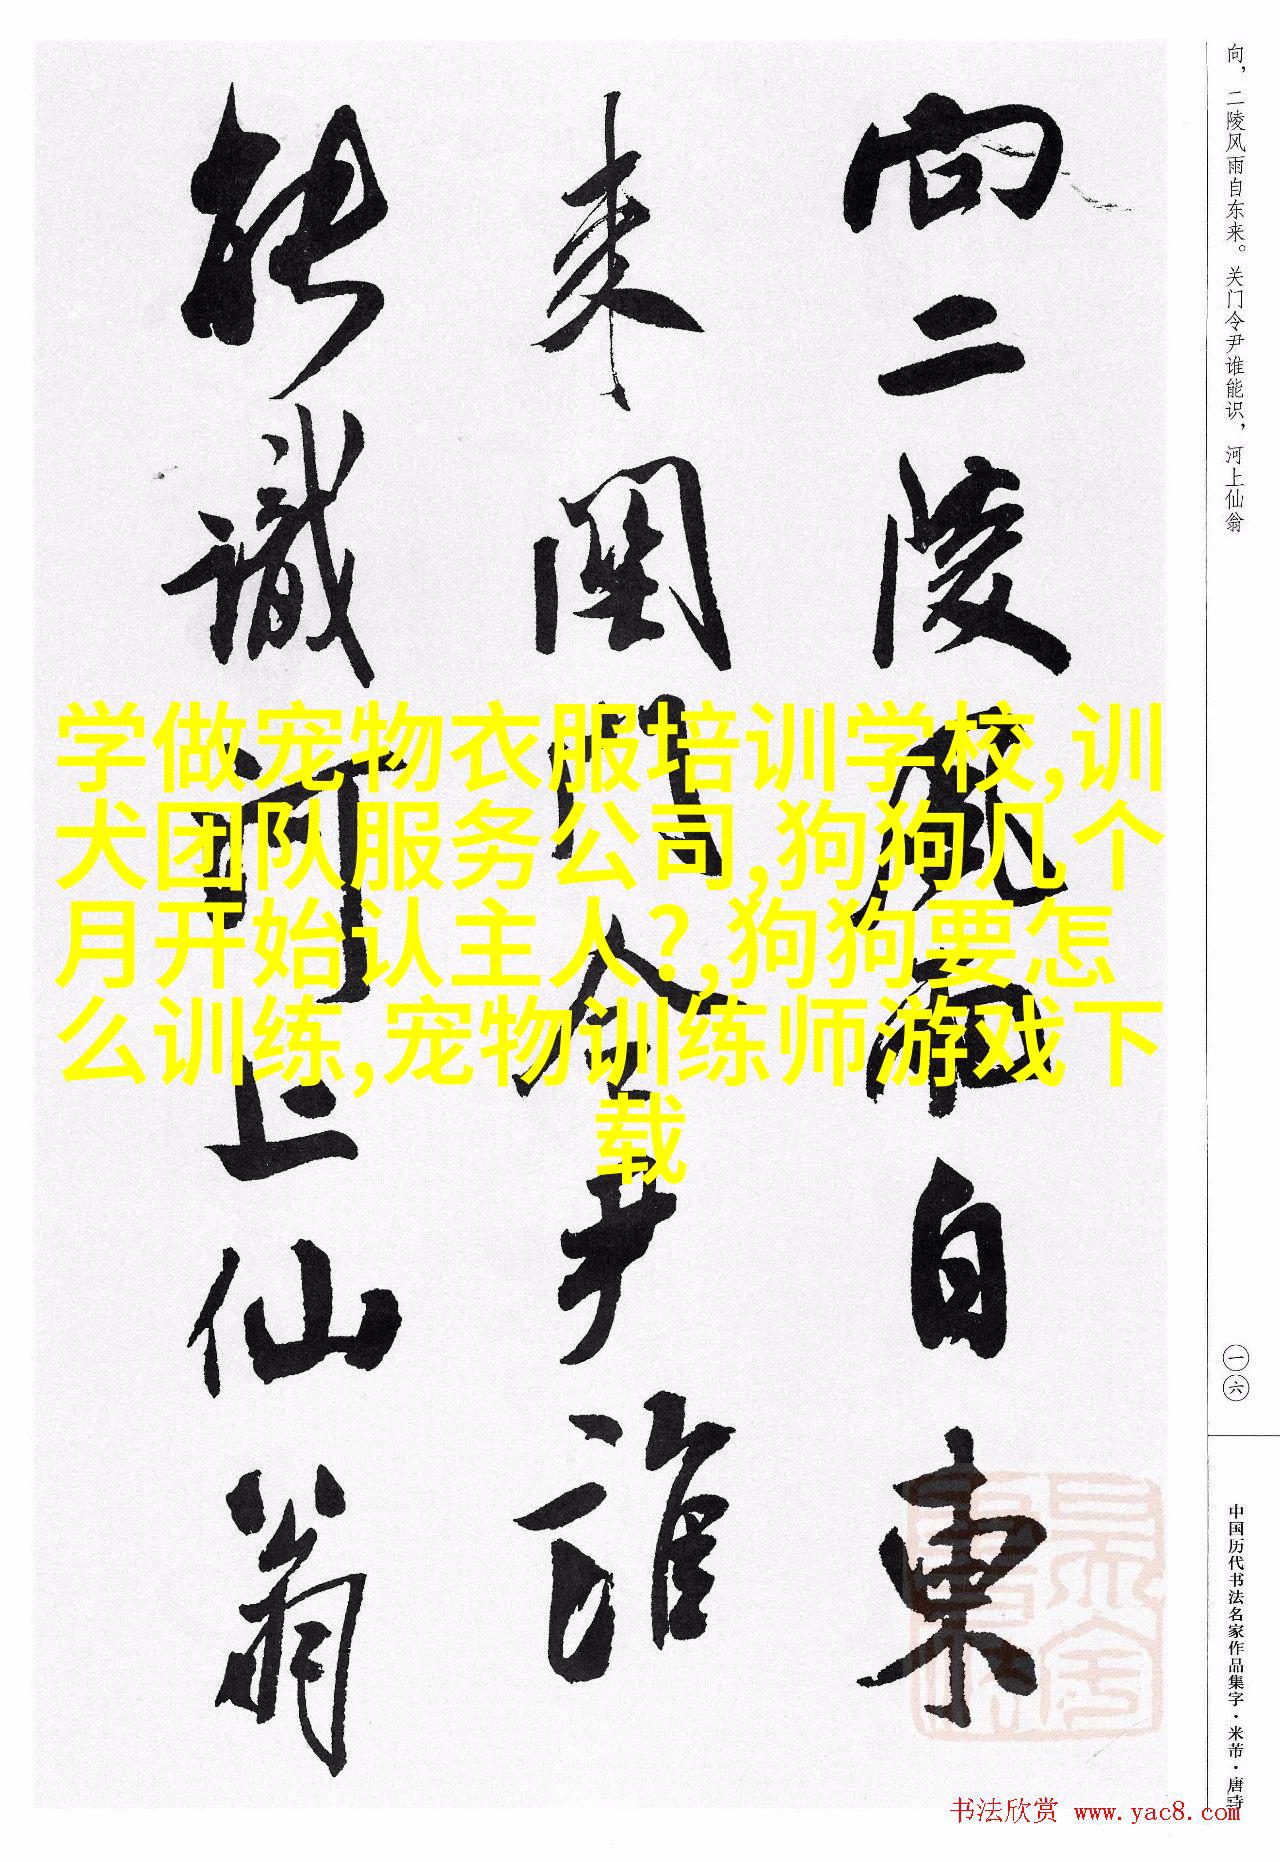 向二陵风雨自東
来関門令尹誰
能識河上仙翁
向，二陵风雨自东来。关门令尹谁能识，河上仙翁
一六
中国历代书法名家作品集字·米芾·唐诗
学做宠物衣服培训学校,训
犬团队服务公司,狗狗几个
月开始认主人?,狗狗要怎
么训练,宠物训练师游戏下
载
书法欣赏 www.yac8.com